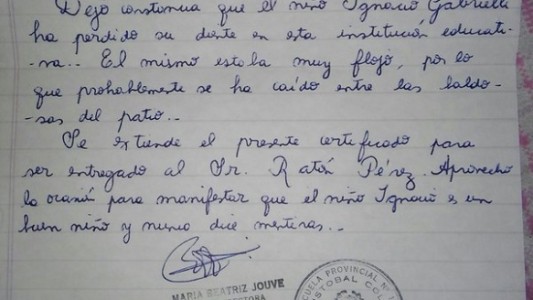 Dejo constancia que el niño Ignacio Gabrielli
ha perdido su diente en esta institución educati-
-va.. El mismo estaba muy flojo, por lo
que probablemente se ha caído entre las baldo-
-sas del patio..
Se extiende el presente certificado para
ser entregado al Sr. Ratón Pérez. Aprovecho
la ocasión para manifestar que el niño Ignacio es un
buen niño y nunca dice mentiras..
MARIA BEATRIZ JOUVE
ESCUELA PROVINCIAL N